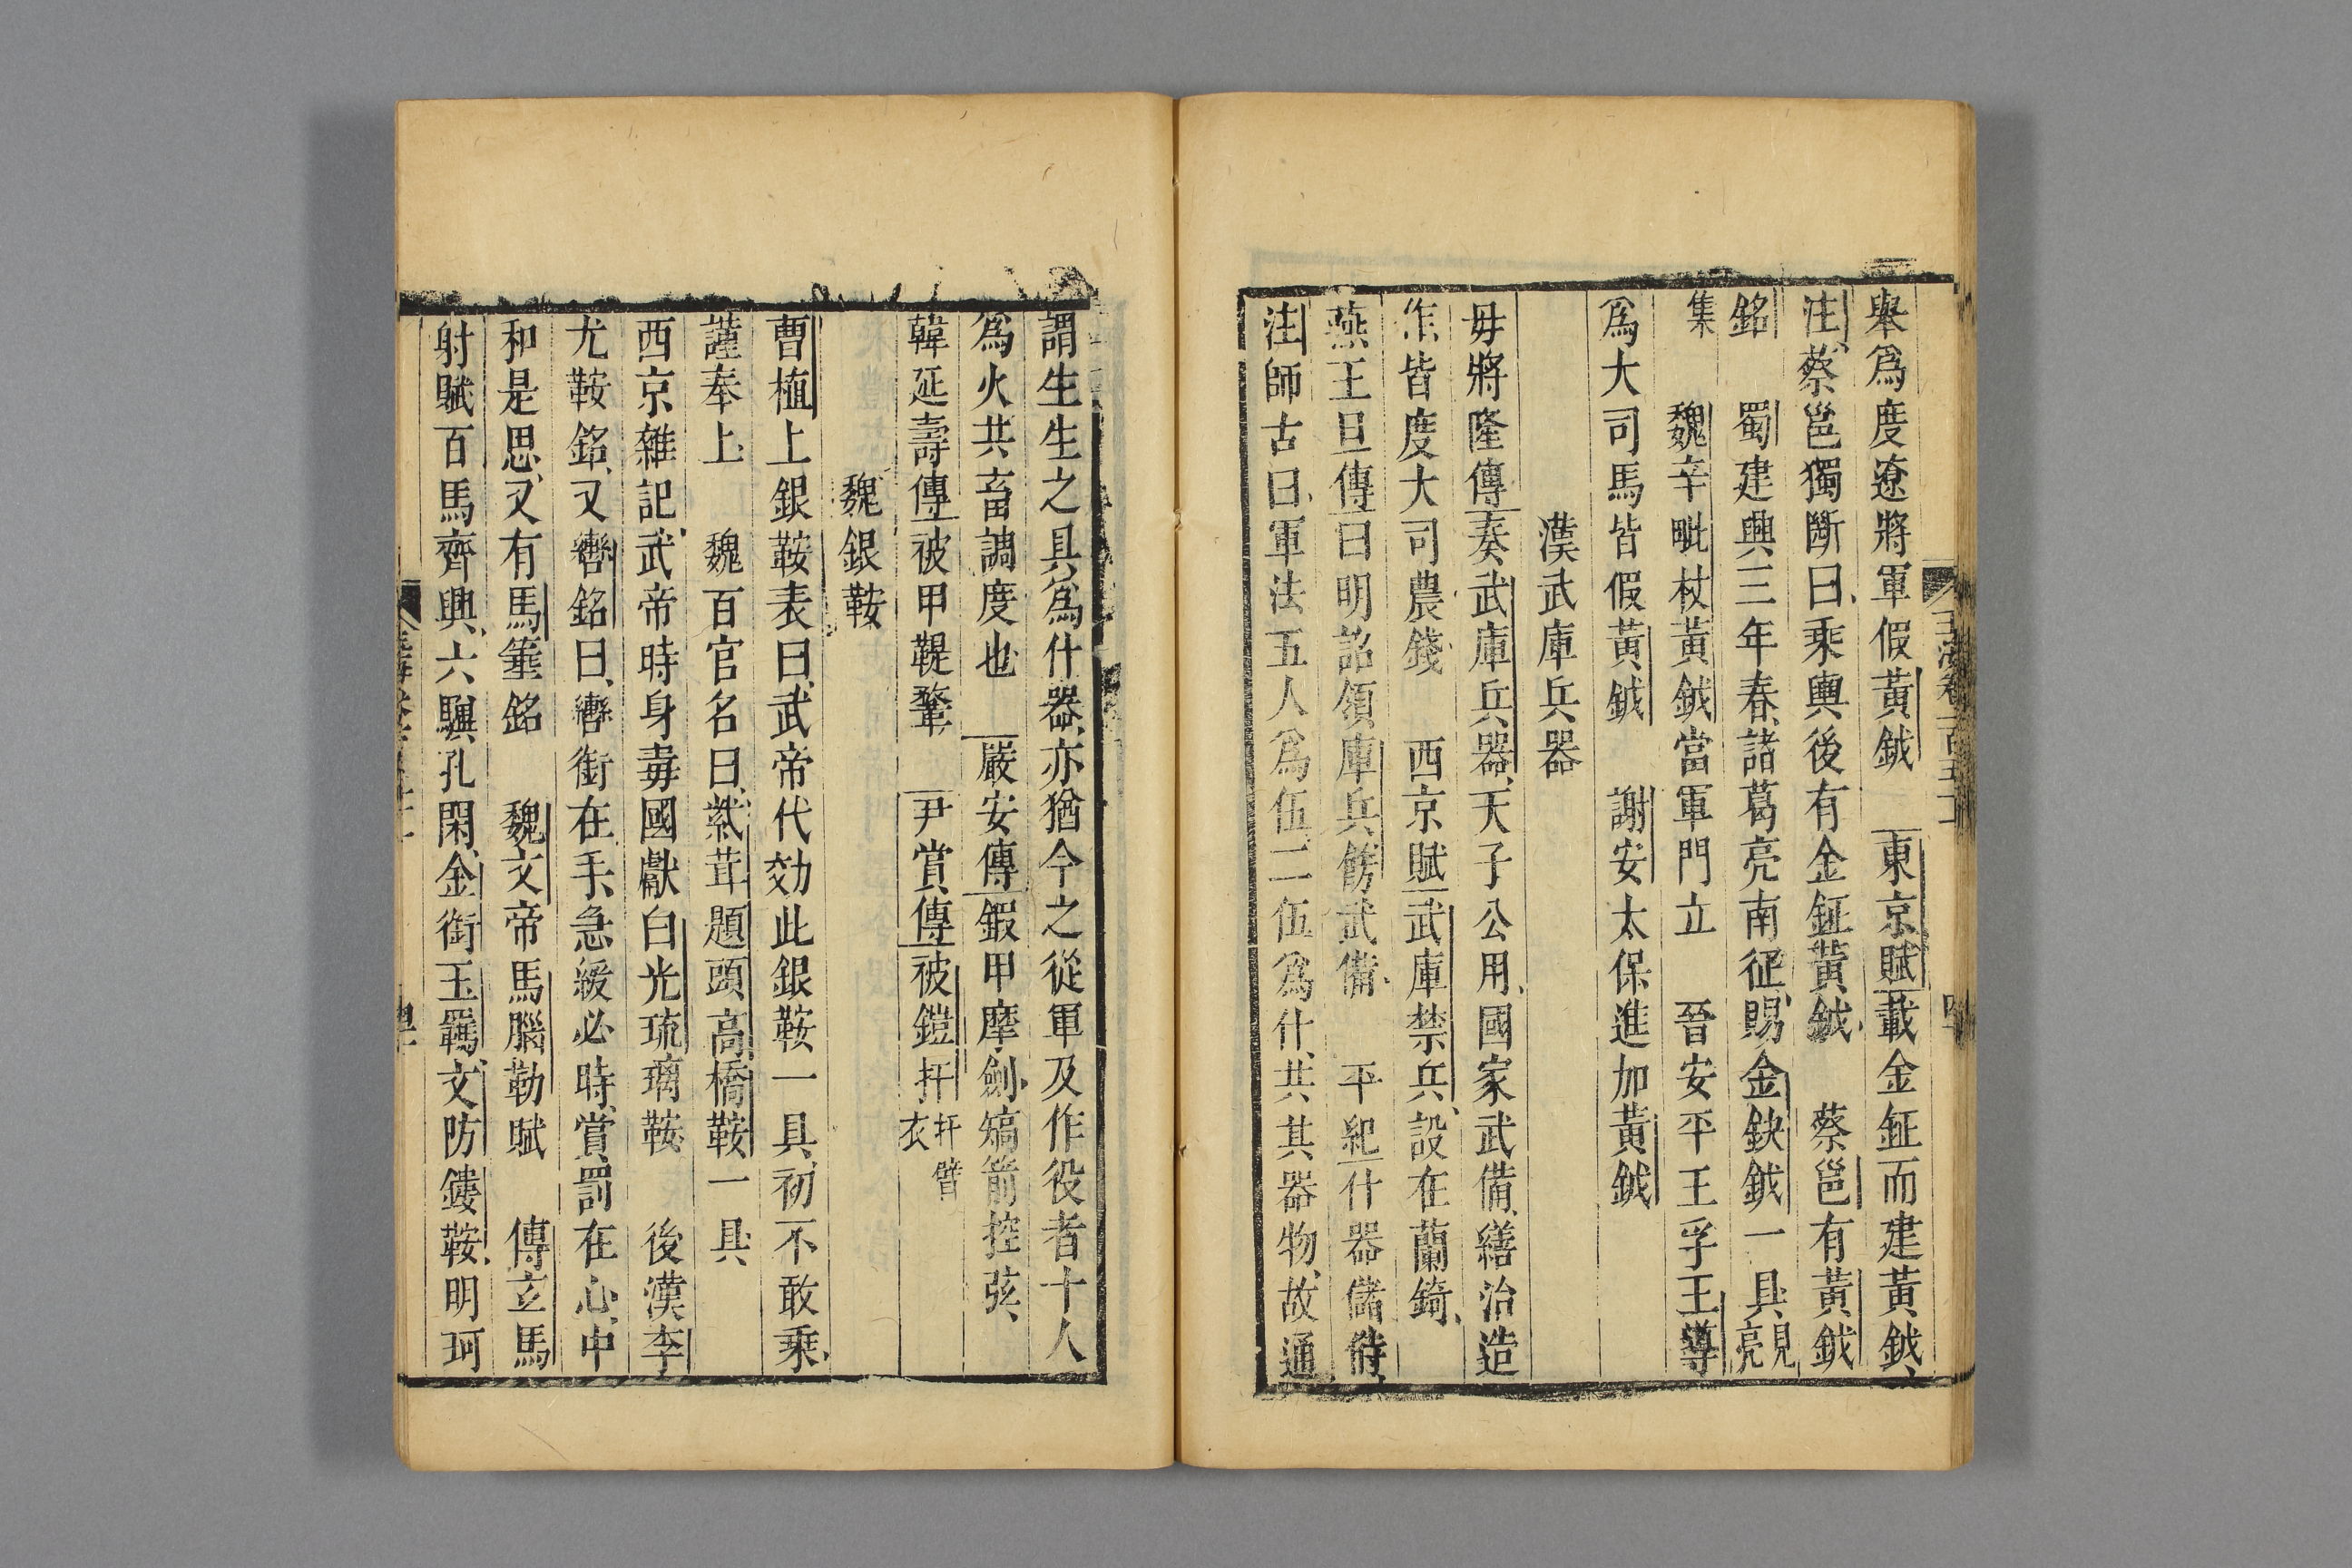 舉爲度遼將軍假黃鉞　東京賦載金鉦而建黃鉞、
注、蔡邕獨斷曰、乘輿後有金鉦黃鉞、　蔡邕有黃鉞
銘　蜀建興三年春、諸葛亮南征、賜金鈇鉞一具、見亮
集　魏辛毗杖黃鉞當軍門立　晉安平王孚王導
爲大司馬皆假黃鉞　謝安太保進加黃鉞
漢武庫兵器
毋將隆傳奏、武庫兵器、天子公用、國家武備、繕治造
作、皆度大司農錢　西京賦武庫禁兵、設在蘭錡、
燕王旦傳曰明詔領庫兵、飭武備、　平紀什器儲偫、
注師古曰、軍法五人爲伍、二伍爲什、共其器物、故通
謂生生之具、爲什器、亦猶今之從軍及作役者十人
爲火共畜調度也　嚴安傳鍜甲摩劍、矯箭控弦、
韓延壽傳被甲鞮鞪　尹賞傳被鎧扞扞臂衣
魏銀鞍
曹植上銀鞍表曰、武帝代効此銀鞍一具、初不敢乘、
謹奉上　魏百官名曰、紫茸題頭高橋鞍一具
西京雜記、武帝時身毒國獻白光琉璃鞍　後漢李
尤鞍銘、又轡銘曰、轡銜在手、急緩必時、賞罰在心、中
和是思、又有馬箠銘　魏文帝馬腦勒賦　傅玄馬
射賦百馬齊興、六騏孔閑、金銜玉羈、文防鏤鞍、明珂